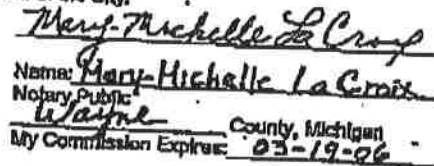 Mary-Michelle La Croix
Name: Mary-Michelle La Croix
Notary Public
Wayne County, Michigan
My Commission Expires: 03-19-06